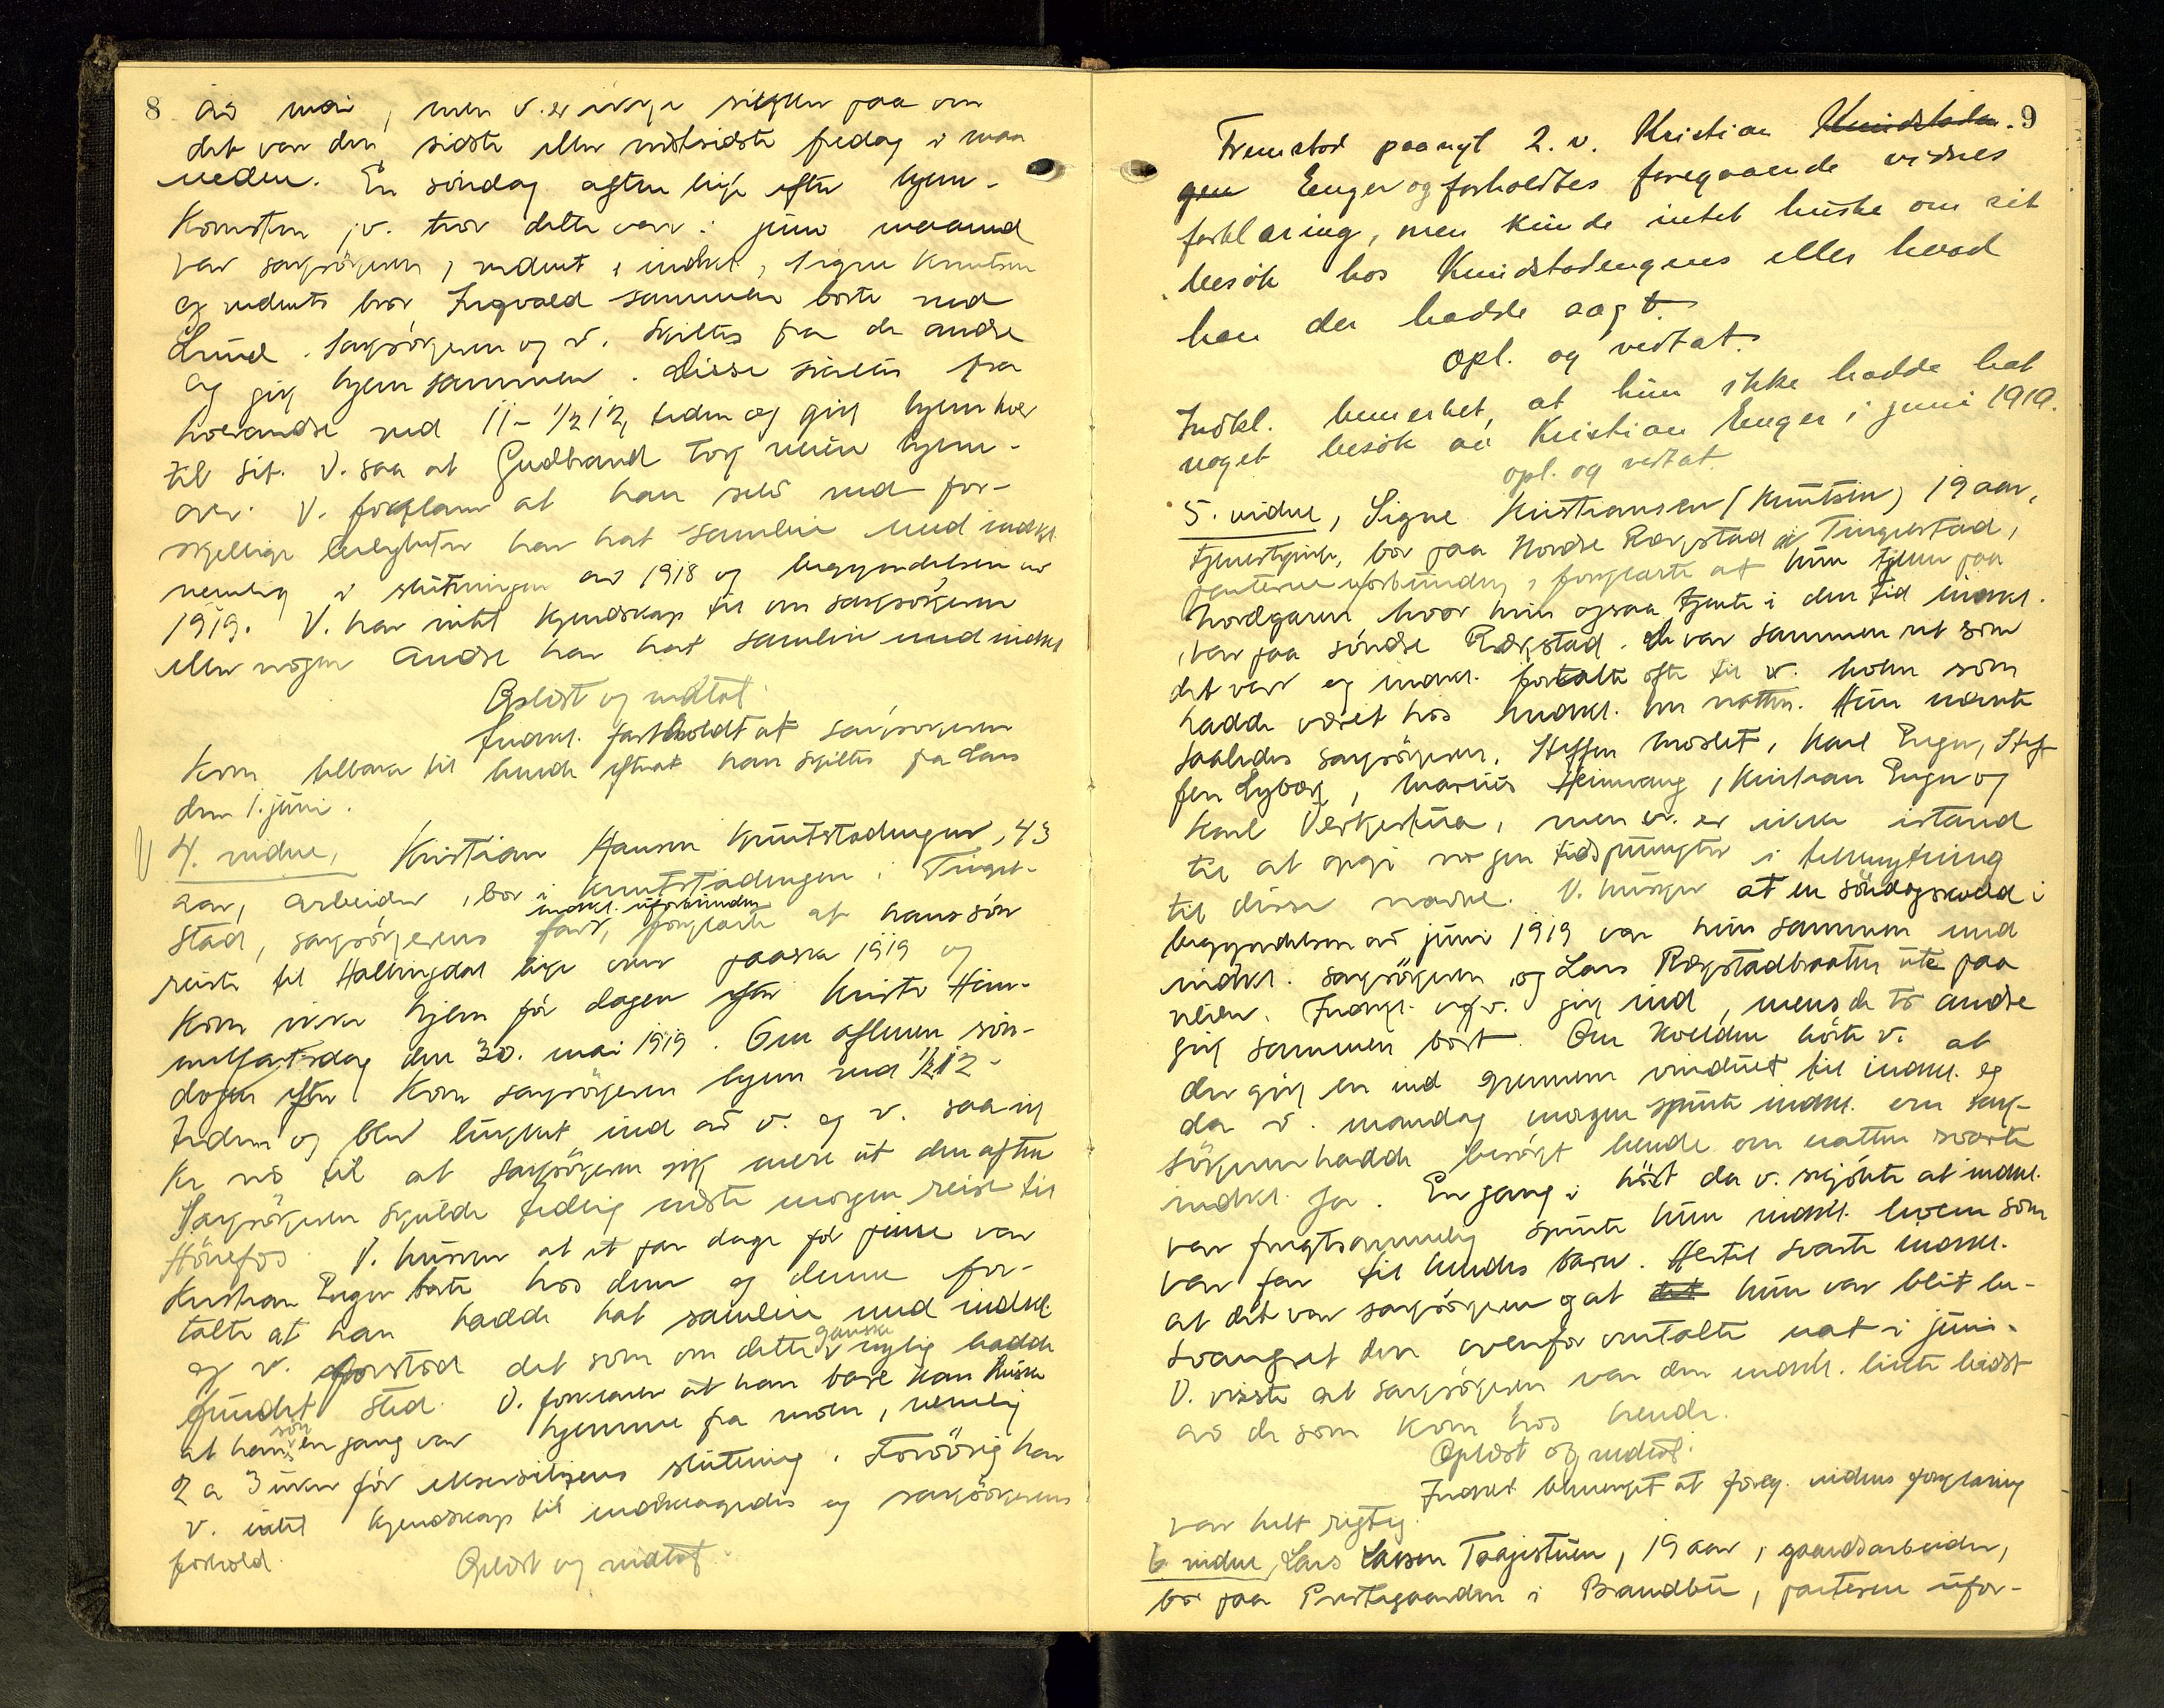 8
av mai, men v. er ikke sikker paa om
det var den sidste eller nestsidste fredag i maa
neden. En søndag aften like efter hjem-
komsten, v. tror dette var i juni maaned
var saksøkeren, vidnet, indkl., Signe Knutsen
og vidnets bror Ingvald sammen borte ved
Lund. Saksøkeren og v. skiltes fra de andre
og gik hjem sammen. Disse skiltes fra
hverandre ved 11 - 1/2 12 tiden og gik hjem hver
til sit. V. saa at Gudbrand tok veien hjem-
over. V. forklarer at han selv ved for-
skjellige leiligheter har hat samleie med indkl.
nemlig i slutningen av 1918 og begyndelsen av
1919. V. har intet kjendskap til om saksøkeren
eller nogen andre har hat samleie med indkl.
Oplæst og vedtat.
Indkl. fastholdt at saksøkeren
kom tilbake til hende efterat han skiltes fra Lars
den 1. juni.
4. vidne, Kristian Hansen Knutstadengen, 43
aar, arbeider, bor i Knutstadengen i Tingel-
stad, saksøkerens far, indkl. uforbunden forklarte at hans søn
reiste til Hallingdal like over paaske 1919 og
kom ikke hjem før dagen efter Kristi Him-
melfartsdag den 30. mai 1919. Om aftenen søn-
dagen efter kom saksøkeren hjem ved 1/2 12-
tiden og blev lukket ind av v. og v. saa ik
ke no til at saksøkeren gik mere ut den aften
Saksøkeren skulde tidlig næste morgen reise til
Hønefos. V. husker at et par dage før pinse var
Kristian Enger borte hos dem og denne for-
talte at han hadde hat samleie med indkl.
og v. forstod det som om dette ganske nylig hadde
fundet sted. V. forklarer at han bare kan huske
at hans søn en gang var hjemme fra moen, nemlig
2 a 3 uker før eksersitiens slutning. Forøvrig har
v. intet kjendskap til indklagedes og saksøkerens
forhold.
Oplæst og vedtat.
9
Fremstod paanyt 2. v. Kristian Knudstaden-
gen Enger og forholdtes foregaaende vidnes
forklaring, men kunde intet huske om sit
besøk hos Knudstadengens eller hvad
han der hadde sagt.
Opl. og vedtat.
Indkl. bemerket, at hun ikke hadde hat
noget besøk av Kristian Enger i juni 1919.
opl. og vedtat.
5. vidne, Signe Kristiansen (Knutsen) 19 aar,
tjenestepike, bor paa Nordre Rækstad i Tingelstad,
parterne uforbunden, forklarte at hun tjener paa
Nordgaren hvor hun ogsaa tjente i den tid indkl.
var paa søndre Rækstad. De var sammen ret som
det var og indkl. fortalte ofte til v. hvem som
hadde været hos indkl. om natten. Hun nævnte
saaledes saksøkeren, Steffen Moslet, Karl Enger, Stef
fen Lybæk, Marius Heimvang, Kristian Enger og
Karl Verkestua, men v. er ikke istand
til at opgi nogen tidspunkter i tilknytning
til disse navne. V. husker at en søndagskveld i
begyndelsen av juni 1919 var hun sammen med
indkl. saksøkeren og Lars Rækstadbraaten ute paa
veien. Indkl. og v. gik ind, mens de to andre
gik sammen bort. Om kvelden hørte v. at
der gik en ind gjennem vinduet til indkl. og
da v. mandag morgen spurte indkl. om sak-
søkeren hadde besøkt hende om natten svarte
indkl. ja. En gang i høst da v. skjønte at indkl.
var frugtsommelig spurte hun indkl. hvem som
var far til hendes barn. Hertil svarte indkl.
at det var saksøkeren og at det hun var blit be-
svangret den ovenfor omtalte nat i juni.
V. visste at saksøkeren var den indkl. likte bedst
av de som kom hos hende.
Oplæst og vedtat.
Indkl. bemerket at foreg. vidnes forklaring
var helt rigtig.
6 vidne, Lars Larsen Taajestuen, 19 aar, gaardsarbeider,
bor paa Prestegaarden i Brandbu, parterne ufor-